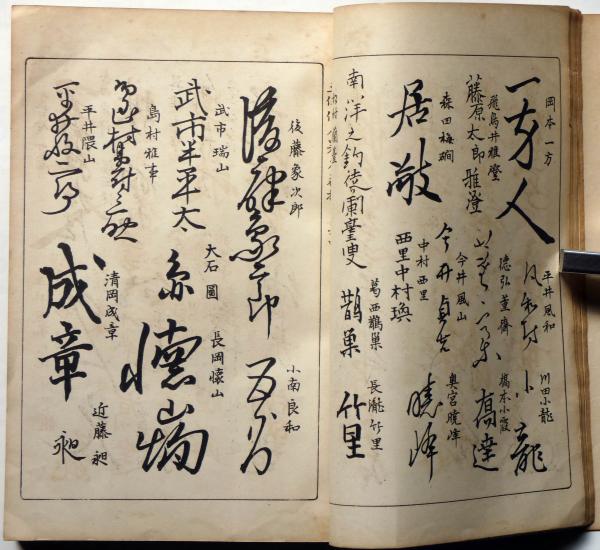 岡本一方
一方人
平井風和
川田小龍
小龍
飛鳥井雅澄
藤原太郎雅澄
徳弘董齋
橋本小霞
高達
森田梅礀
居敬
今井風山
今井貞吉
奥宮曉峰
曉峰
中村西里
西里中村瑛
葛西鵲巣
鵲巣
長瀧竹里
竹里
南洋之釣徒蘭臺叟
後藤象次郎
後藤象二郎
小南良和
武市瑞山
武市半平太
大石圓
長岡懐山
懐山
島村雅事
清岡成章
成章
平井隈山
近藤昶
昶